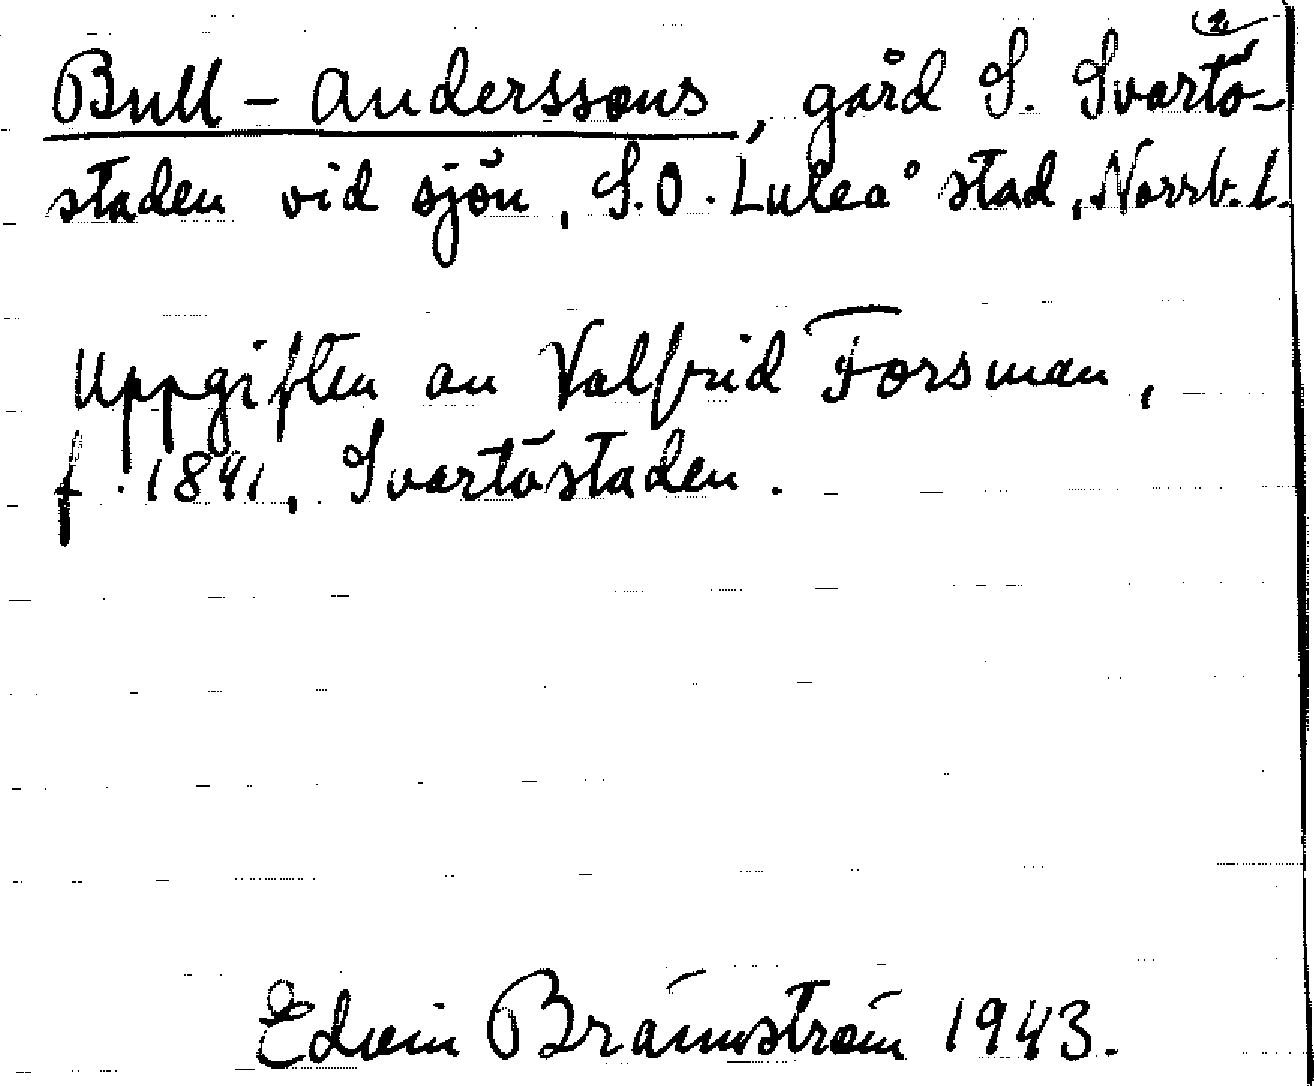 2
Bull-Anderssons, gård S. Svartö-
staden vid sjön, S.O. Luleå stad, Norrb. l.
Uppgiften av Valfrid Forsman,
f. 1891, Svartöstaden.
Edvin Brännström 1943.